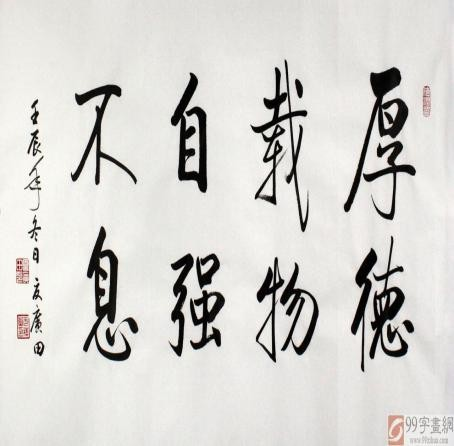 厚德
载物
自强
不息
壬辰年冬日文广田
99字畫網
www.99zihua.com